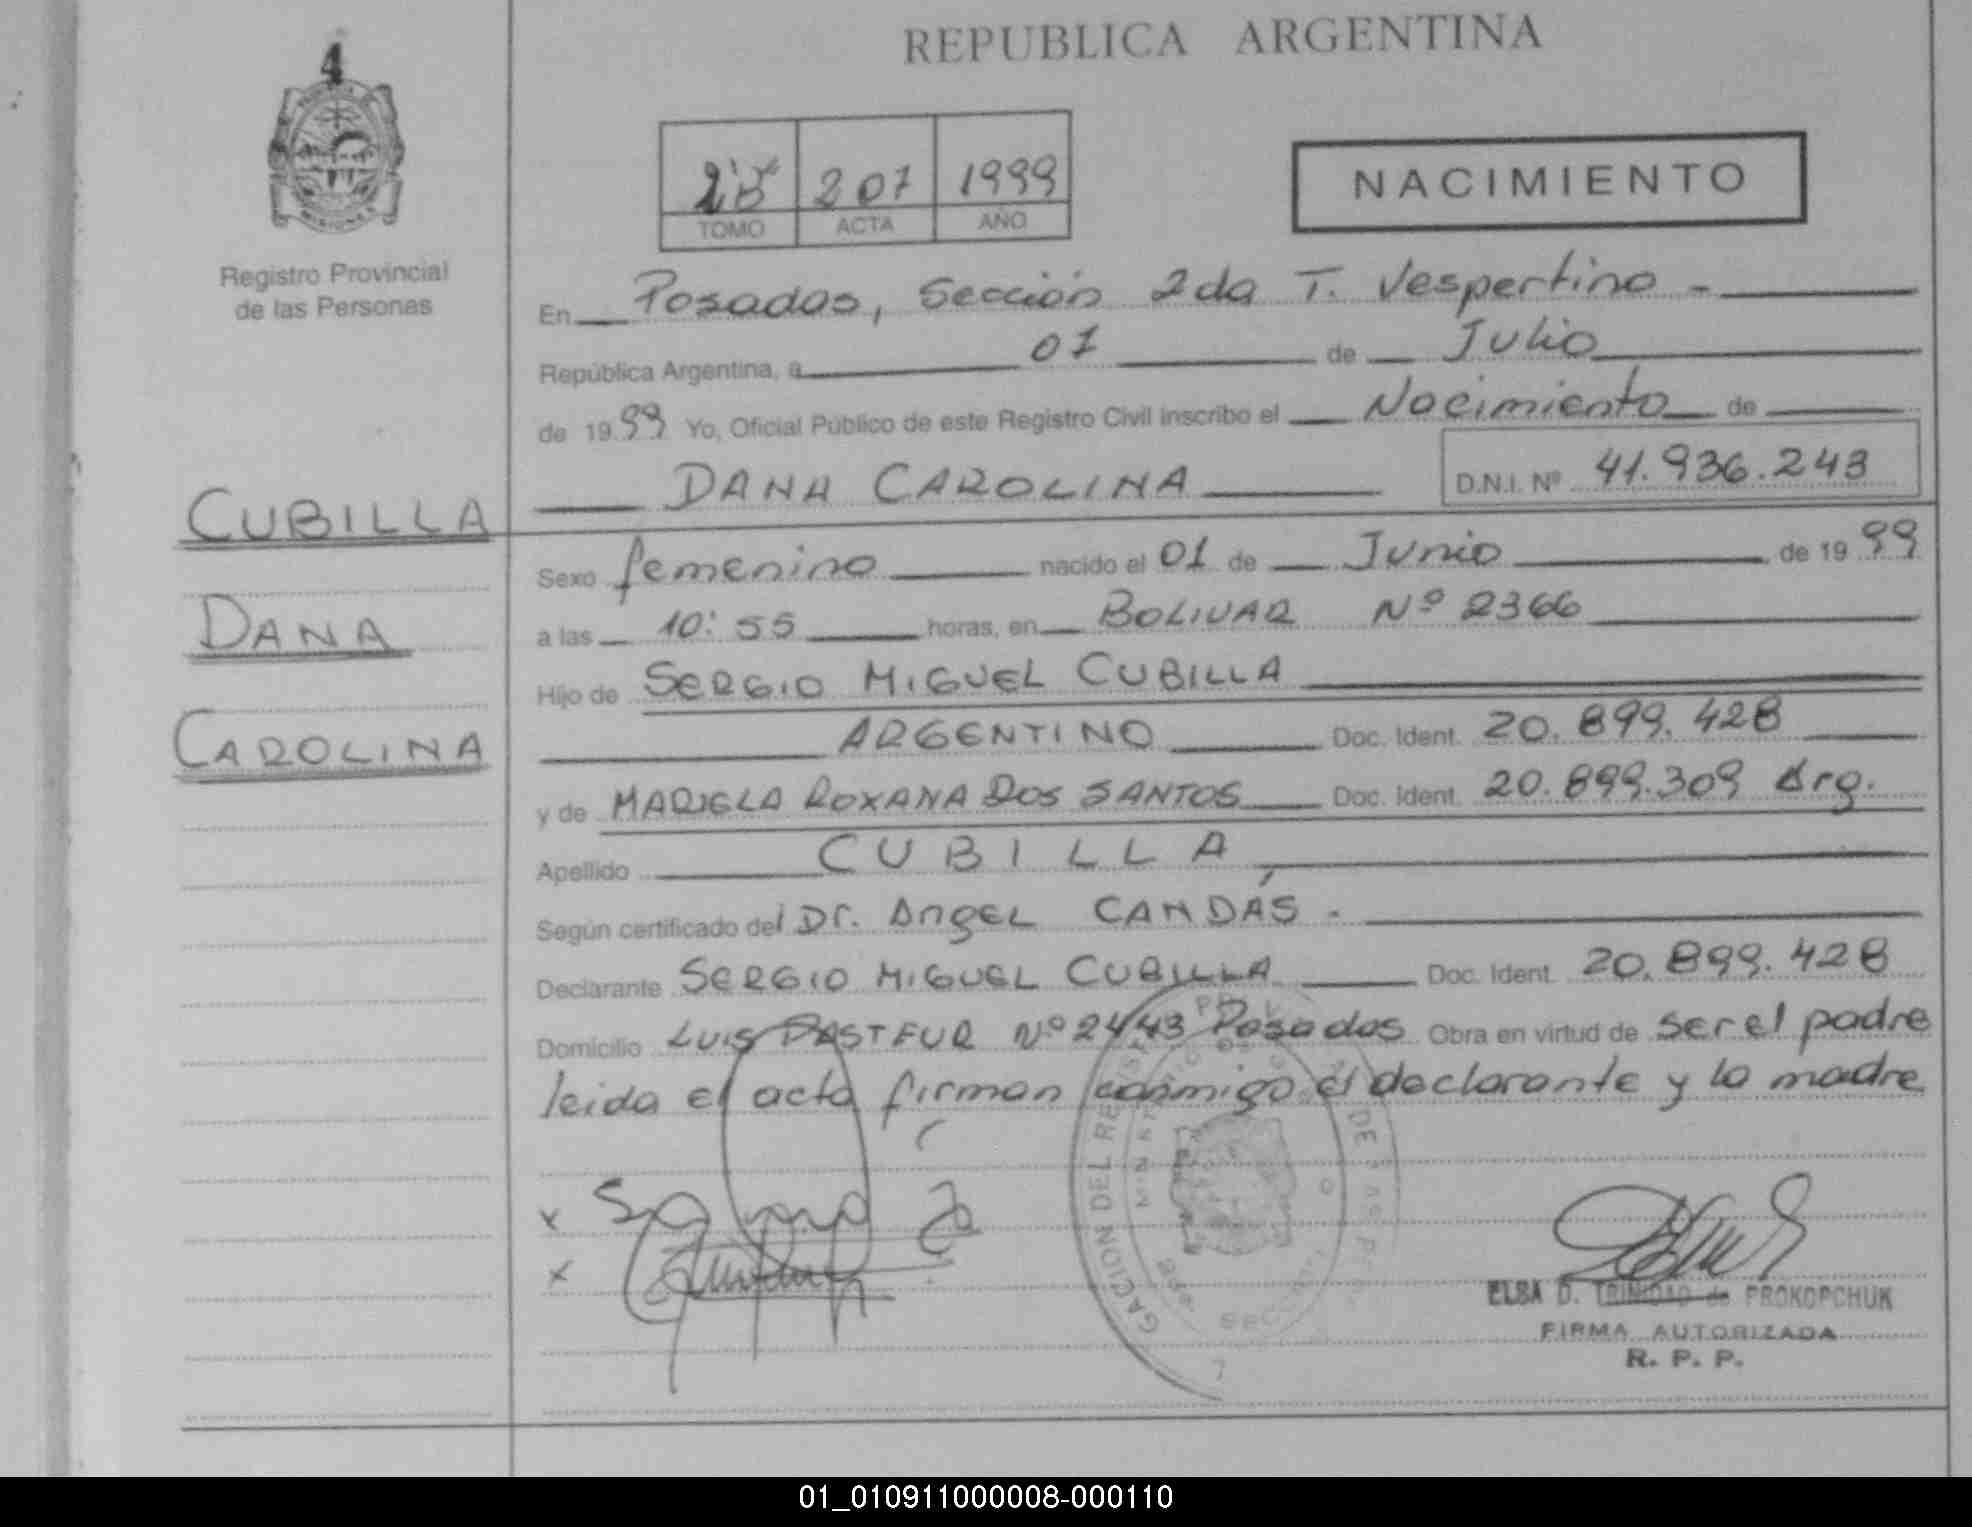 4
REPUBLICA ARGENTINA
207 1999
TOMO ACTA AÑO
NACIMIENTO
Registro Provincial
de las Personas
MISIONES
En Posadas, Sección 2da T. Vespertino -
República Argentina, a 01 de Julio
de 1999 Yo, Oficial Público de este Registro Civil inscribo el Nacimiento de
DANA CAROLINA D.N.I. Nº 41.936.243
CUBILLA
DANA
CAROLINA
Sexo femenino nacido el 01 de Junio de 1999
a las 10:55 horas, en BOLIVAR Nº 2366
Hijo de SERGIO MIGUEL CUBILLA
ARGENTINO Doc. Ident. 20.899.428
y de MARIELA ROXANA DOS SANTOS Doc. Ident. 20.899.309 Arg.
Apellido CUBILLA
Según certificado del Dr. Angel CANDÁS -
Declarante SERGIO MIGUEL CUBILLA Doc. Ident. 20.899.428
Domicilio LUIS PASTEUR Nº 2443 Posadas Obra en virtud de ser el padre
leida el acta firman conmigo el declarante y la madre
ELSA D. TRINIDAD de PROKOPCHUK
FIRMA AUTORIZADA
R. P. P.
01_010911000008-000110